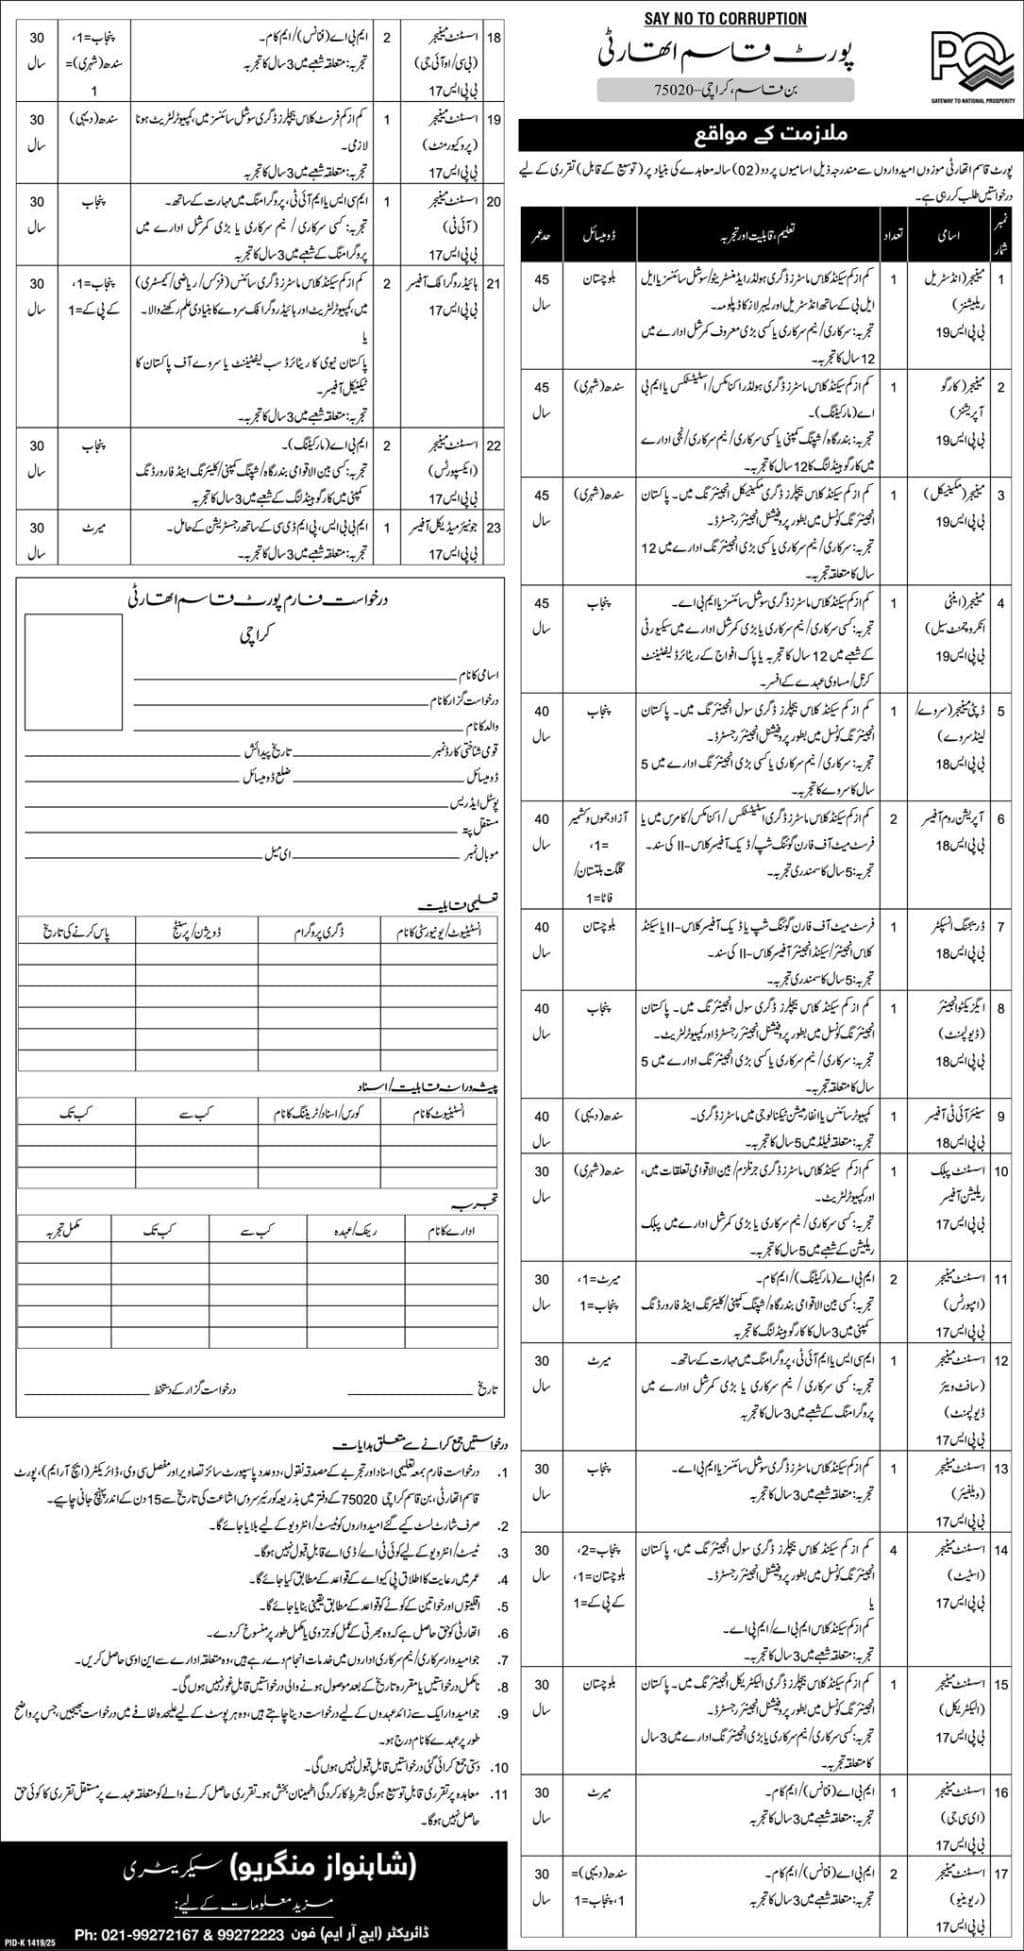 SAY NO TO CORRUPTION
پورٹ قاسم اتھارٹی
بن قاسم، کراچی-75020
PQA
GATEWAY TO NATIONAL PROSPERITY
ملازمت کے مواقع
پورٹ قاسم اتھارٹی موزوں امیدواروں سے مندرجہ ذیل اسامیوں پر دو (02) سالہ معاہدے کی بنیاد پر (توسیع کے قابل) تقرری کے لیے
درخواستیں طلب کر رہی ہے۔
نمبر شمار | اسامی | تعداد | تعلیم، قابلیت اور تجربہ | ڈومیسائل | حد عمر
1 | مینیجر (انڈسٹریل ریلیشنز) بی پی ایس 19 | 1 | کم از کم سیکنڈ کلاس ماسٹرز ڈگری ہولڈر ایڈمنسٹریٹو/سوشل سائنسز یا ایل ایل بی کے ساتھ انڈسٹریل اور لیبر لاز کا ڈپلومہ۔ تجربہ: سرکاری/نیم سرکاری یا کسی بڑی معروف کمرشل ادارے میں 12 سال کا تجربہ۔ | بلوچستان | 45 سال
2 | مینیجر (کارگو آپریشنز) بی پی ایس 19 | 1 | کم از کم سیکنڈ کلاس ماسٹرز ڈگری ہولڈر اکنامکس/اسٹیٹسٹکس یا ایم بی اے (مارکیٹنگ)۔ تجربہ: بندرگاہ/شپنگ کمپنی یا کسی سرکاری/نیم سرکاری/نجی ادارے میں کارگو ہینڈلنگ کا 12 سال کا تجربہ۔ | سندھ (شہری) | 45 سال
3 | مینیجر (مکینیکل) بی پی ایس 19 | 1 | کم از کم سیکنڈ کلاس بیچلرز ڈگری مکینیکل انجینئرنگ میں۔ پاکستان انجینئرنگ کونسل میں بطور پروفیشنل انجینئر رجسٹرڈ۔ تجربہ: سرکاری/نیم سرکاری یا کسی بڑی انجینئرنگ ادارے میں 12 سال کا متعلقہ تجربہ۔ | سندھ (شہری) | 45 سال
4 | مینیجر (اینٹی انکروچمنٹ سیل) بی پی ایس 19 | 1 | کم از کم سیکنڈ کلاس ماسٹرز ڈگری سوشل سائنسز یا ایم بی اے۔ تجربہ: کسی سرکاری/نیم سرکاری یا بڑی کمرشل ادارے میں سیکیورٹی کے شعبے میں 12 سال کا تجربہ یا پاک افواج کے ریٹائرڈ لیفٹیننٹ کرنل/مساوی عہدے کے افسر۔ | پنجاب | 45 سال
5 | ڈپٹی مینیجر (سروے/لینڈ سروے) بی پی ایس 18 | 1 | کم از کم سیکنڈ کلاس بیچلرز ڈگری سول انجینئرنگ میں۔ پاکستان انجینئرنگ کونسل میں بطور پروفیشنل انجینئر رجسٹرڈ۔ تجربہ: سرکاری/نیم سرکاری یا کسی بڑی انجینئرنگ ادارے میں 5 سال کا سروے کا تجربہ۔ | پنجاب | 40 سال
6 | آپریشن روم آفیسر بی پی ایس 18 | 2 | کم از کم سیکنڈ کلاس ماسٹرز ڈگری اسٹیٹسٹکس/اکنامکس/کامرس میں یا فرسٹ میٹ آف فارن گوئنگ شپ/ڈیک آفیسر کلاس-II کی سند۔ تجربہ: 5 سال کا سمندری تجربہ۔ | آزاد جموں و کشمیر =1، گلگت بلتستان/فاٹا=1 | 40 سال
7 | ڈریجنگ انسپکٹر بی پی ایس 18 | 1 | فرسٹ میٹ آف فارن گوئنگ شپ یا ڈیک آفیسر کلاس-II یا سیکنڈ کلاس انجینئر/سیکنڈ انجینئر آفیسر کلاس-II کی سند۔ تجربہ: 5 سال کا سمندری تجربہ۔ | بلوچستان | 40 سال
8 | ایگزیکٹو انجینئر (ڈیولپمنٹ) بی پی ایس 18 | 1 | کم از کم سیکنڈ کلاس بیچلرز ڈگری سول انجینئرنگ میں۔ پاکستان انجینئرنگ کونسل میں بطور پروفیشنل انجینئر رجسٹرڈ اور کمپیوٹر لٹریٹ۔ تجربہ: سرکاری/نیم سرکاری یا کسی بڑی انجینئرنگ ادارے میں 5 سال کا متعلقہ تجربہ۔ | پنجاب | 40 سال
9 | سینئر آئی ٹی آفیسر بی پی ایس 18 | 1 | کمپیوٹر سائنس یا انفارمیشن ٹیکنالوجی میں ماسٹرز ڈگری۔ تجربہ: متعلقہ فیلڈ میں 5 سال کا تجربہ۔ | سندھ (دیہی) | 40 سال
10 | اسسٹنٹ پبلک ریلیشن آفیسر بی پی ایس 17 | 1 | کم از کم سیکنڈ کلاس ماسٹرز ڈگری جرنلزم/بین الاقوامی تعلقات میں، اور کمپیوٹر لٹریٹ۔ تجربہ: کسی سرکاری/نیم سرکاری یا بڑی کمرشل ادارے میں پبلک ریلیشن کے شعبے میں 5 سال کا تجربہ۔ | سندھ (شہری) | 30 سال
11 | اسسٹنٹ مینیجر (امپورٹس) بی پی ایس 17 | 2 | ایم بی اے (مارکیٹنگ)/ایم کام۔ تجربہ: کسی بین الاقوامی بندرگاہ/شپنگ کمپنی/کلیئرنگ اینڈ فارورڈنگ کمپنی میں 3 سال کا کارگو ہینڈلنگ کا تجربہ | میرٹ=1، پنجاب=1 | 30 سال
12 | اسسٹنٹ مینیجر (سافٹ ویئر ڈیولپمنٹ) بی پی ایس 17 | 1 | ایم سی ایس یا ایم آئی ٹی، پروگرامنگ میں مہارت کے ساتھ۔ تجربہ: کسی سرکاری/نیم سرکاری یا بڑی کمرشل ادارے میں پروگرامنگ کے شعبے میں 3 سال کا تجربہ | میرٹ | 30 سال
13 | اسسٹنٹ مینیجر (ویلفیئر) بی پی ایس 17 | 1 | کم از کم سیکنڈ کلاس ماسٹرز ڈگری سوشل سائنسز یا ایم بی اے۔ تجربہ: متعلقہ شعبے میں 3 سال کا تجربہ۔ | پنجاب | 30 سال
14 | اسسٹنٹ مینیجر (اسٹیٹ) بی پی ایس 17 | 4 | کم از کم سیکنڈ کلاس بیچلرز ڈگری سول انجینئرنگ میں، پاکستان انجینئرنگ کونسل میں بطور پروفیشنل انجینئر رجسٹرڈ۔ یا کم از کم سیکنڈ کلاس ایم بی اے/ایم پی اے۔ تجربہ: متعلقہ شعبے میں 3 سال کا تجربہ۔ | پنجاب=2، بلوچستان=1، کے پی کے=1 | 30 سال
15 | اسسٹنٹ مینیجر (الیکٹریکل) بی پی ایس 17 | 1 | کم از کم سیکنڈ کلاس بیچلرز ڈگری الیکٹریکل انجینئرنگ میں۔ پاکستان انجینئرنگ کونسل میں بطور پروفیشنل انجینئر رجسٹرڈ۔ تجربہ: کسی سرکاری/نیم سرکاری یا بڑی انجینئرنگ ادارے میں 3 سال کا متعلقہ تجربہ۔ | بلوچستان | 30 سال
16 | اسسٹنٹ مینیجر (ای سی جی) بی پی ایس 17 | 1 | ایم بی اے (فنانس)/ایم کام۔ تجربہ: متعلقہ شعبے میں 3 سال کا تجربہ۔ | میرٹ | 30 سال
17 | اسسٹنٹ مینیجر (ریوینیو) بی پی ایس 17 | 2 | ایم بی اے (فنانس)/ایم کام۔ تجربہ: متعلقہ شعبے میں 3 سال کا تجربہ | سندھ (دیہی)=1، پنجاب=1 | 30 سال
18 | اسسٹنٹ مینیجر (بی سی/او آئی جی) بی پی ایس 17 | 2 | ایم بی اے (فنانس)/ایم کام۔ تجربہ: متعلقہ شعبے میں 3 سال کا تجربہ | پنجاب=1، سندھ (شہری)=1 | 30 سال
19 | اسسٹنٹ مینیجر (پروکیورمنٹ) بی پی ایس 17 | 1 | کم از کم فرسٹ کلاس بیچلرز ڈگری سوشل سائنسز میں، کمپیوٹر لٹریٹ ہونا لازمی۔ تجربہ: متعلقہ شعبے میں 3 سال کا تجربہ | سندھ (دیہی) | 30 سال
20 | اسسٹنٹ مینیجر (آئی ٹی) بی پی ایس 17 | 1 | ایم سی ایس یا ایم آئی ٹی، پروگرامنگ میں مہارت کے ساتھ۔ تجربہ: کسی سرکاری/نیم سرکاری یا بڑی کمرشل ادارے میں پروگرامنگ کے شعبے میں 3 سال کا تجربہ | پنجاب | 30 سال
21 | ہائیڈروگرافک آفیسر بی پی ایس 17 | 2 | کم از کم سیکنڈ کلاس ماسٹرز ڈگری سائنس (فزکس/ریاضی/کیمسٹری) میں، کمپیوٹر لٹریٹ اور ہائیڈروگرافک سروے کا بنیادی علم رکھنے والا۔ یا پاکستان نیوی کا ریٹائرڈ سب لیفٹیننٹ یا سروے آف پاکستان کا ٹیکنیکل آفیسر۔ تجربہ: متعلقہ شعبے میں 3 سال کا تجربہ۔ | پنجاب=1، کے پی کے=1 | 30 سال
22 | اسسٹنٹ مینیجر (ایکسپورٹس) بی پی ایس 17 | 2 | ایم بی اے (مارکیٹنگ)۔ تجربہ: کسی بین الاقوامی بندرگاہ/شپنگ کمپنی/کلیئرنگ اینڈ فارورڈنگ کمپنی میں کارگو ہینڈلنگ کے شعبے میں 3 سال کا تجربہ | پنجاب | 30 سال
23 | جونیئر میڈیکل آفیسر بی پی ایس 17 | 1 | ایم بی بی ایس، پی ایم ڈی سی کے ساتھ رجسٹریشن کے حامل۔ تجربہ: متعلقہ شعبے میں 3 سال کا تجربہ۔ | میرٹ | 30 سال
درخواست فارم پورٹ قاسم اتھارٹی
کراچی
اسامی کا نام
درخواست گزار کا نام
والد کا نام
قومی شناختی کارڈ نمبر تاریخ پیدائش
ڈومیسائل ضلع ڈومیسائل
پوسٹل ایڈریس
مستقل پتہ
موبائل نمبر ای میل
تعلیمی قابلیت
انسٹیٹیوٹ/یونیورسٹی کا نام | ڈگری پروگرام | ڈویژن/پرسنٹیج | پاس کرنے کی تاریخ
پیشہ ورانہ قابلیت/اسناد
انسٹیٹیوٹ کا نام | کورس/اسناد/ٹریننگ کا نام | کب سے | کب تک
تجربہ
ادارے کا نام | رینک/عہدہ | کب سے | کب تک | مکمل تجربہ
تاریخ درخواست گزار کے دستخط
درخواستیں جمع کرانے سے متعلق ہدایات
1. درخواست فارم بمعہ تعلیمی اسناد اور تجربے کے مصدقہ نقول، دو عدد پاسپورٹ سائز تصاویر اور مفصل سی وی، ڈائریکٹر (ایچ آر ایم)، پورٹ
قاسم اتھارٹی، بن قاسم کراچی 75020 کے دفتر میں بذریعہ کوریئر سروس اشاعت کی تاریخ سے 15 دن کے اندر پہنچ جانی چاہیے۔
2. صرف شارٹ لسٹ کیے گئے امیدواروں کو ٹیسٹ/انٹرویو کے لیے بلایا جائے گا۔
3. ٹیسٹ/انٹرویو کے لیے کوئی ٹی اے/ڈی اے قابل قبول نہیں ہوگا۔
4. عمر میں رعایت کا اطلاق پی کیو اے کے قواعد کے مطابق کیا جائے گا۔
5. اقلیتوں اور خواتین کے کوٹے کو قواعد کے مطابق یقینی بنایا جائے گا۔
6. اتھارٹی کو حق حاصل ہے کہ وہ بھرتی کے عمل کو جزوی یا مکمل طور پر منسوخ کر دے۔
7. جو امیدوار سرکاری/نیم سرکاری اداروں میں خدمات انجام دے رہے ہیں، وہ متعلقہ ادارے سے این او سی حاصل کریں۔
8. نامکمل درخواستیں یا مقررہ تاریخ کے بعد موصول ہونے والی درخواستیں قابل غور نہیں ہوں گی۔
9. جو امیدوار ایک سے زائد عہدوں کے لیے درخواست دینا چاہتے ہیں، وہ ہر پوسٹ کے لیے علیحدہ لفافے میں درخواست بھیجیں، جس پر واضح
طور پر عہدے کا نام درج ہو۔
10. دستی جمع کرائی گئی درخواستیں قابل قبول نہیں ہوں گی۔
11. معاہدہ پر تقرری قابل توسیع ہوگی بشرط کارکردگی اطمینان بخش ہو۔ تقرری حاصل کرنے والے کو متعلقہ عہدے پر مستقل تقرری کا کوئی حق
حاصل نہیں ہوگا۔
(شاہنواز منگریو) سیکریٹری
مزید معلومات کے لیے:
ڈائریکٹر (ایچ آر ایم) فون Ph: 021-99272167 & 99272223
PID-K 1419/25